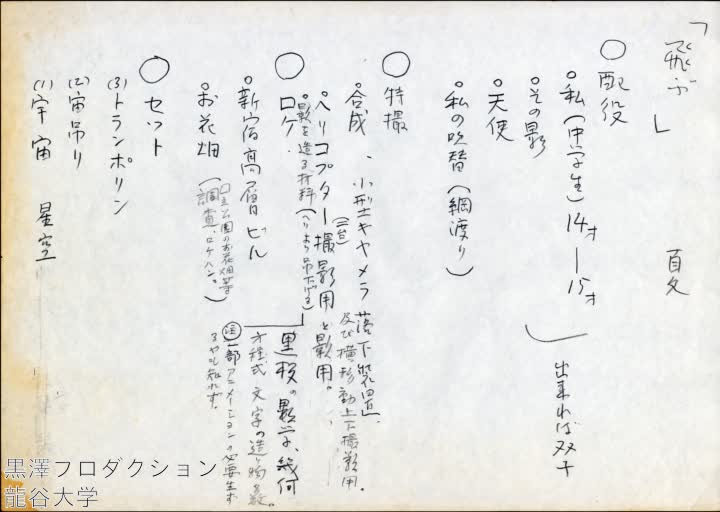 「飛ぶ」
○配役
○私(中学生)14才—15才
出来れば双子
○その影
○天使
○私の吹替(綱渡り)
○特撮
○合成、小型キャメラ落下装置。
及び横移動上下撮影用。
○ヘリコプター(二台)撮影用と影用。
○影を造る材料(ヘリより吊下げる)
○ロケ.
黒板。数学、幾何
方程式 文字の造り物
一部アニメーションの必要生ず
るやも知れず.
○新宿高層ビル
○お花畑(国立公園のお花畑等
調査、ロケハン。)
○セット
(3)トランポリン
(2)宙吊り
(1)宇宙 星空
黒澤プロダクション
龍谷大学